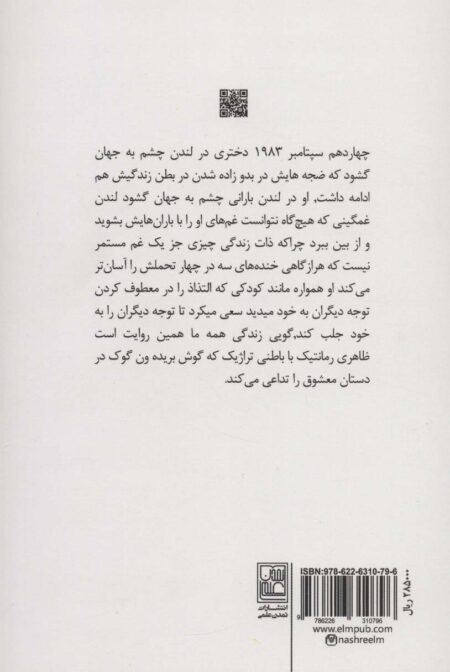 چهاردهم سپتامبر ۱۹۸۳ دختری در لندن چشم به جهان
گشود که ضجه هایش در بدو زاده شدن در بطن زندگیش هم
ادامه داشت, او در لندن بارانی چشم به جهان گشود لندن
غمگینی که هیچ‌گاه نتوانست غم‌های او را با باران‌هایش بشوید
و از بین ببرد چراکه ذات زندگی چیزی جز یک غم مستمر
نیست که هرازگاهی خنده‌های سه در چهار تحملش را آسان‌تر
می‌کند او همواره مانند کودکی که التذاذ را در معطوف کردن
توجه دیگران به خود میدید سعی میکرد تا توجه دیگران را به
خود جلب کند,گویی زندگی همه ما همین روایت است
ظاهری رمانتیک با باطنی تراژیک که گوش بریده ون گوک در
دستان معشوق را تداعی می‌کند.
ISBN:978-622-6310-79-6
9 786226 310796
۲۸۵۰۰۰ ریال
انتشارات
تمدن علمی
www.elmpub.com
nashreelm